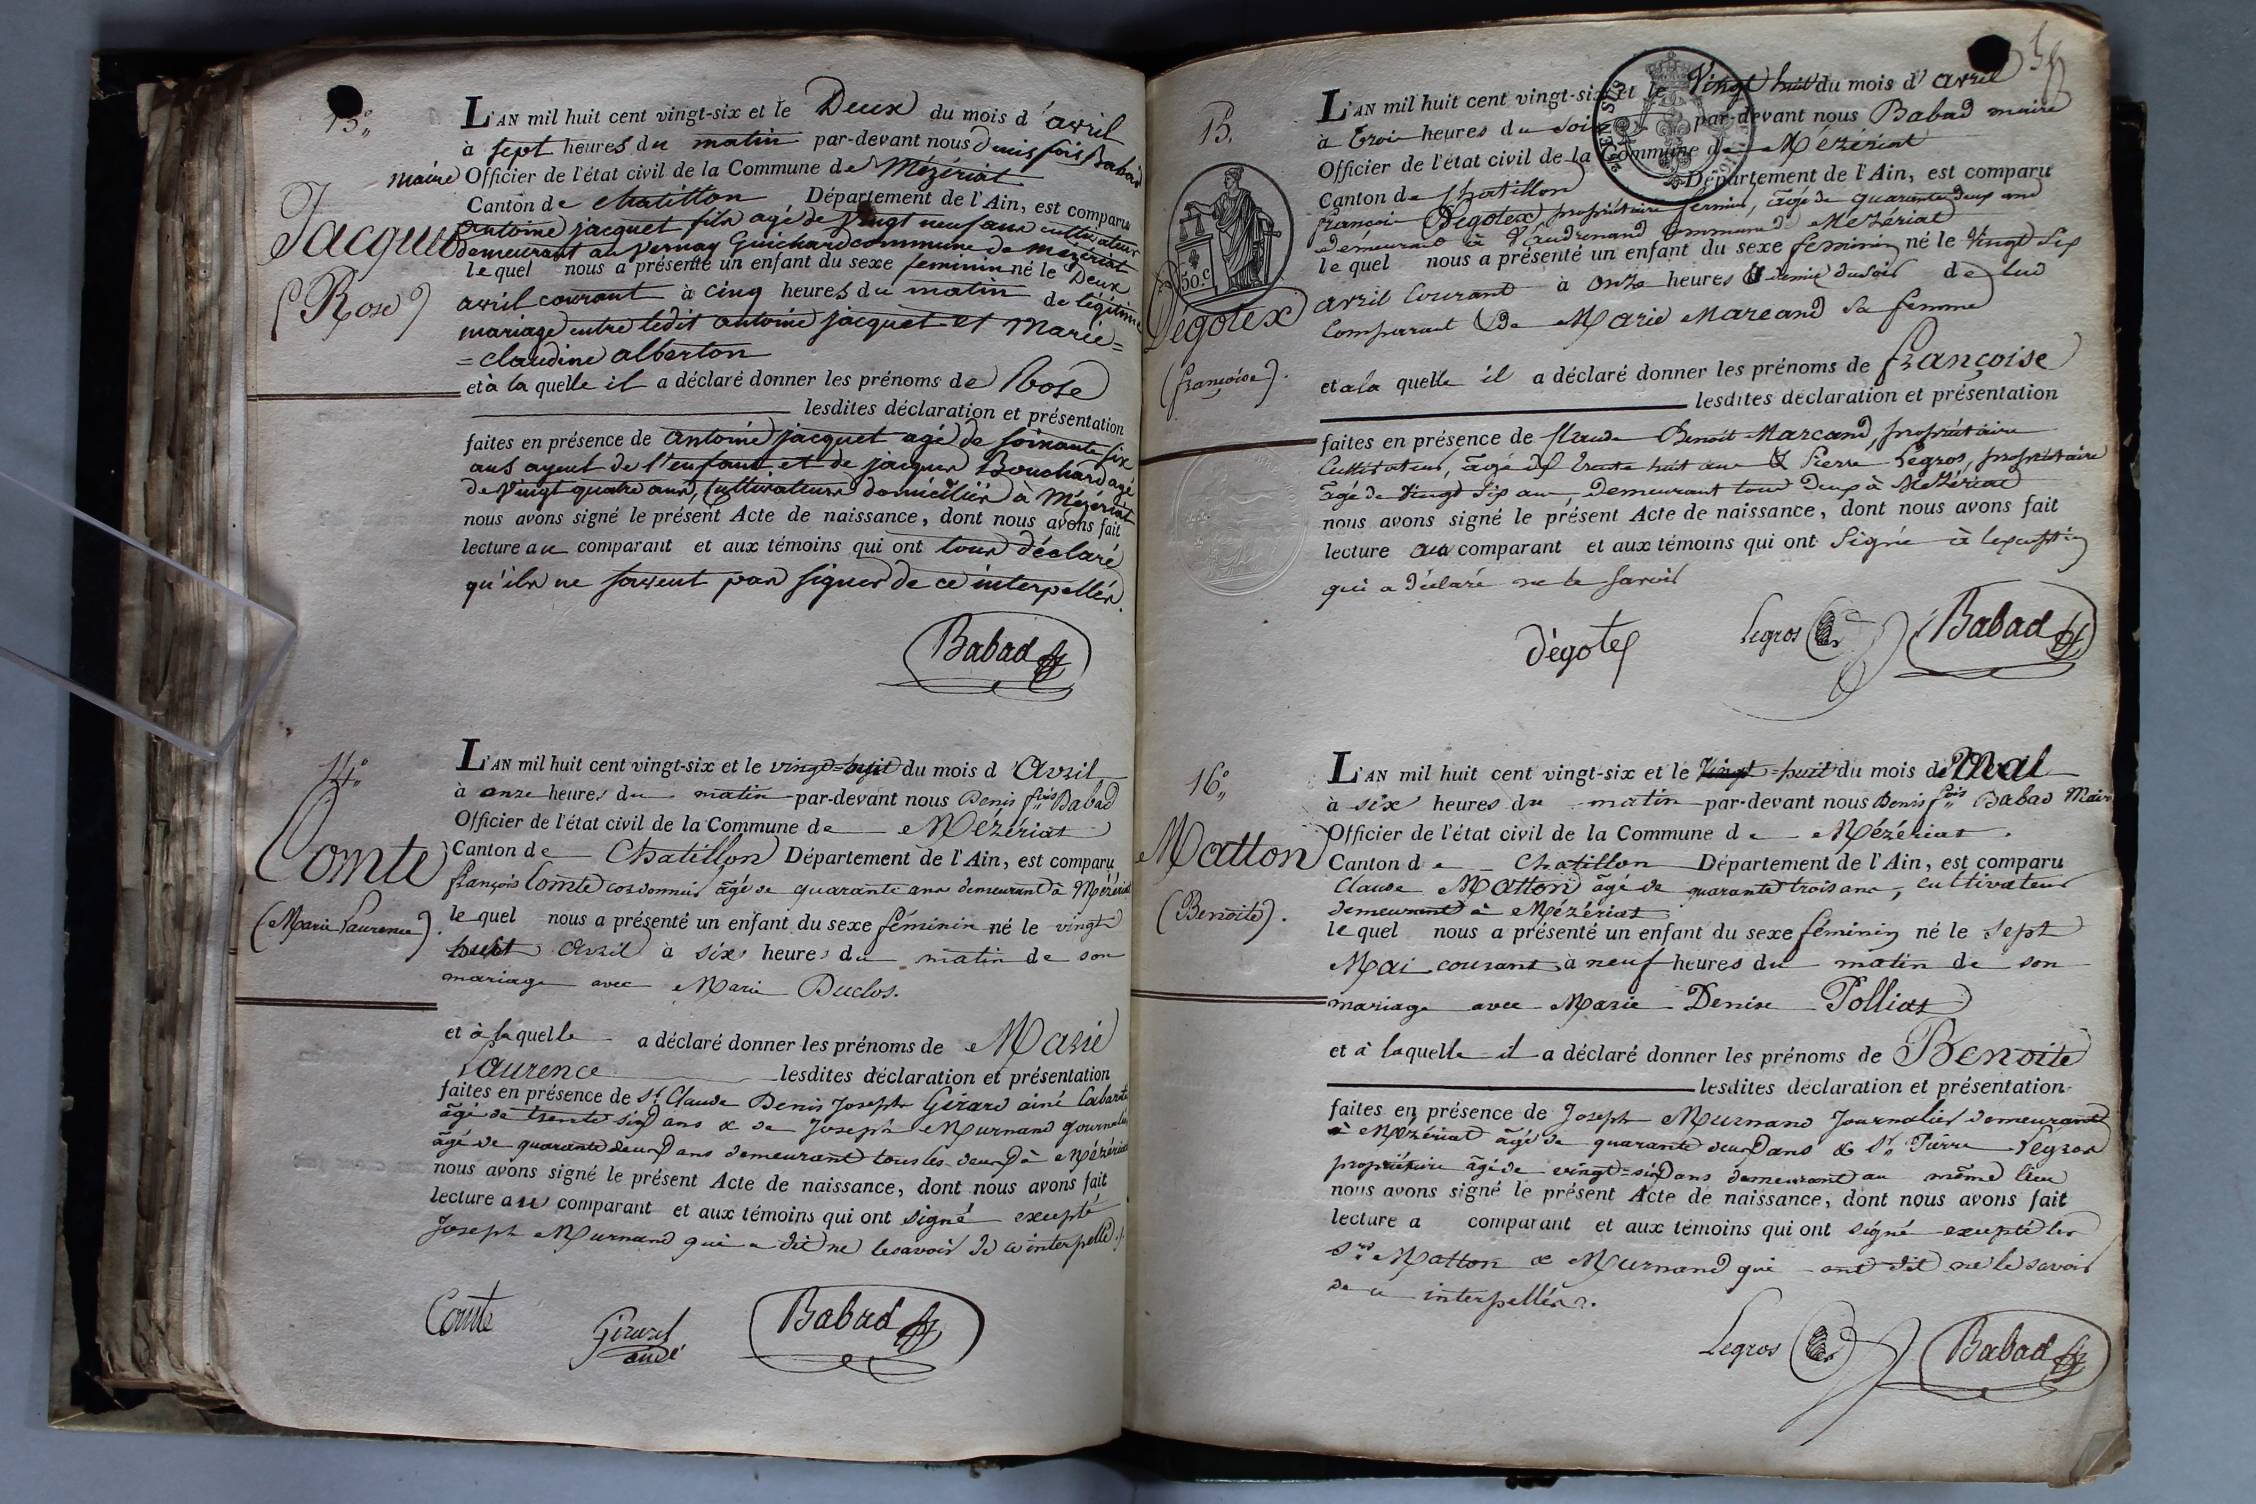 13°
Jacquet
(Rose)
L'AN mil huit cent vingt-six et le Deux du mois d'avril
à sept heures du matin par-devant nous Denis fois Babad
maire Officier de l'état civil de la Commune de Mézériat
Canton de chatillon Département de l'Ain, est comparu
antoine jacquet fils agé de vingt neuf ans cultivateur
demeurant au vernay Guichard commune de mézériat
lequel nous a présenté un enfant du sexe feminin né le Deux
avril courant à cinq heures du matin de légitime
mariage entre ledit antoine jacquet et Marie=
=claudine alberton
et à la quelle il a déclaré donner les prénoms de Rose
lesdites déclaration et présentation
faites en présence de antoine jacquet agé de soixante six
ans ayeul de l'enfant et de jacques Bouchard agé
de vingt quatre ans, cultivateurs domiciliés à Mézériat
nous avons signé le présent Acte de naissance, dont nous avons fait
lecture au comparant et aux témoins qui ont tous déclaré
qu'ils ne savent pas signer de ce interpellés.
Babad
14°
Comte
(Marie Laurence).
L'AN mil huit cent vingt-six et le vingt=huit du mois d'Avril
à onze heures du matin par-devant nous Denis fois Babad
Officier de l'état civil de la Commune de Mézériat
Canton de Chatillon Département de l'Ain, est comparu
françois Comte cordonnier âgé de quarante ans demeurant à Mézériat
lequel nous a présenté un enfant du sexe féminin né le vingt
huit Avril à six heures du matin de son
mariage avec Marie Duclos.
et à laquelle a déclaré donner les prénoms de Marie
Laurence lesdites déclaration et présentation
faites en présence de Sr Claude Denis Joseph Girard ainé Cabaretier
âgé de trente six ans & de Joseph Murnand journalier
âgé de quarante deux ans demeurant tous les deux à Mézériat
nous avons signé le présent Acte de naissance, dont nous avons fait
lecture au comparant et aux témoins qui ont signé excepté
Joseph Murnand qui a dit ne le savoir de ce interpellé./.
Comte Girard ainé Babad
15.
50.c
Dégotex
(françoise).
L'AN mil huit cent vingt-six et le Vingt huit du mois d'avril
à trois heures du soir par-devant nous Babad maire
Officier de l'état civil de la Commune de Mézériat
Canton de Chatillon Département de l'Ain, est comparu
françois Dégotex, propriétaire fermier, âgé de quarante deux ans
demeurant à Vaudrenand commune de Mézériat
lequel nous a présenté un enfant du sexe feminin né le Vingt six
avril Courant à onze heures & demie du soir de lui
Comparant & de Marie Marcand sa femme
et à la quelle il a déclaré donner les prénoms de françoise
lesdites déclaration et présentation
faites en présence de Claude Benoit Marcand, propriétaire
Cultivateur, âgé de trente huit ans & Pierre Legros, propriétaire
âgé de vingt six ans demeurant tous deux à Mézériat
nous avons signé le présent Acte de naissance, dont nous avons fait
lecture au comparant et aux témoins qui ont signé à l'exception
qui a déclaré ne le savoir
dégotex Legros Babad
16°
Matton
(Benoite).
L'AN mil huit cent vingt-six et le Vingt=huit du mois de Mai
à six heures du matin par-devant nous Denis fois Babad Maire
Officier de l'état civil de la Commune de Mézériat.
Canton de Chatillon Département de l'Ain, est comparu
Claude Matton âgé de quarante trois ans, cultivateur
demeurant à Mézériat
lequel nous a présenté un enfant du sexe féminin né le sept
Mai courant à neuf heures du matin de son
mariage avec Marie Denise Polliat
et à laquelle il a déclaré donner les prénoms de Benoite
lesdites déclaration et présentation
faites en présence de Joseph Murnand Journalier demeurant
à Mézériat âgé de quarante deux ans & Sr Pierre Legros
propriétaire âgé de vingt=six ans demeurant au même lieu
nous avons signé le présent Acte de naissance, dont nous avons fait
lecture a comparant et aux témoins qui ont signé excepté les
Srs Matton & Murnand qui ont dit ne le savoir
de ce interpellés.
Legros Babad